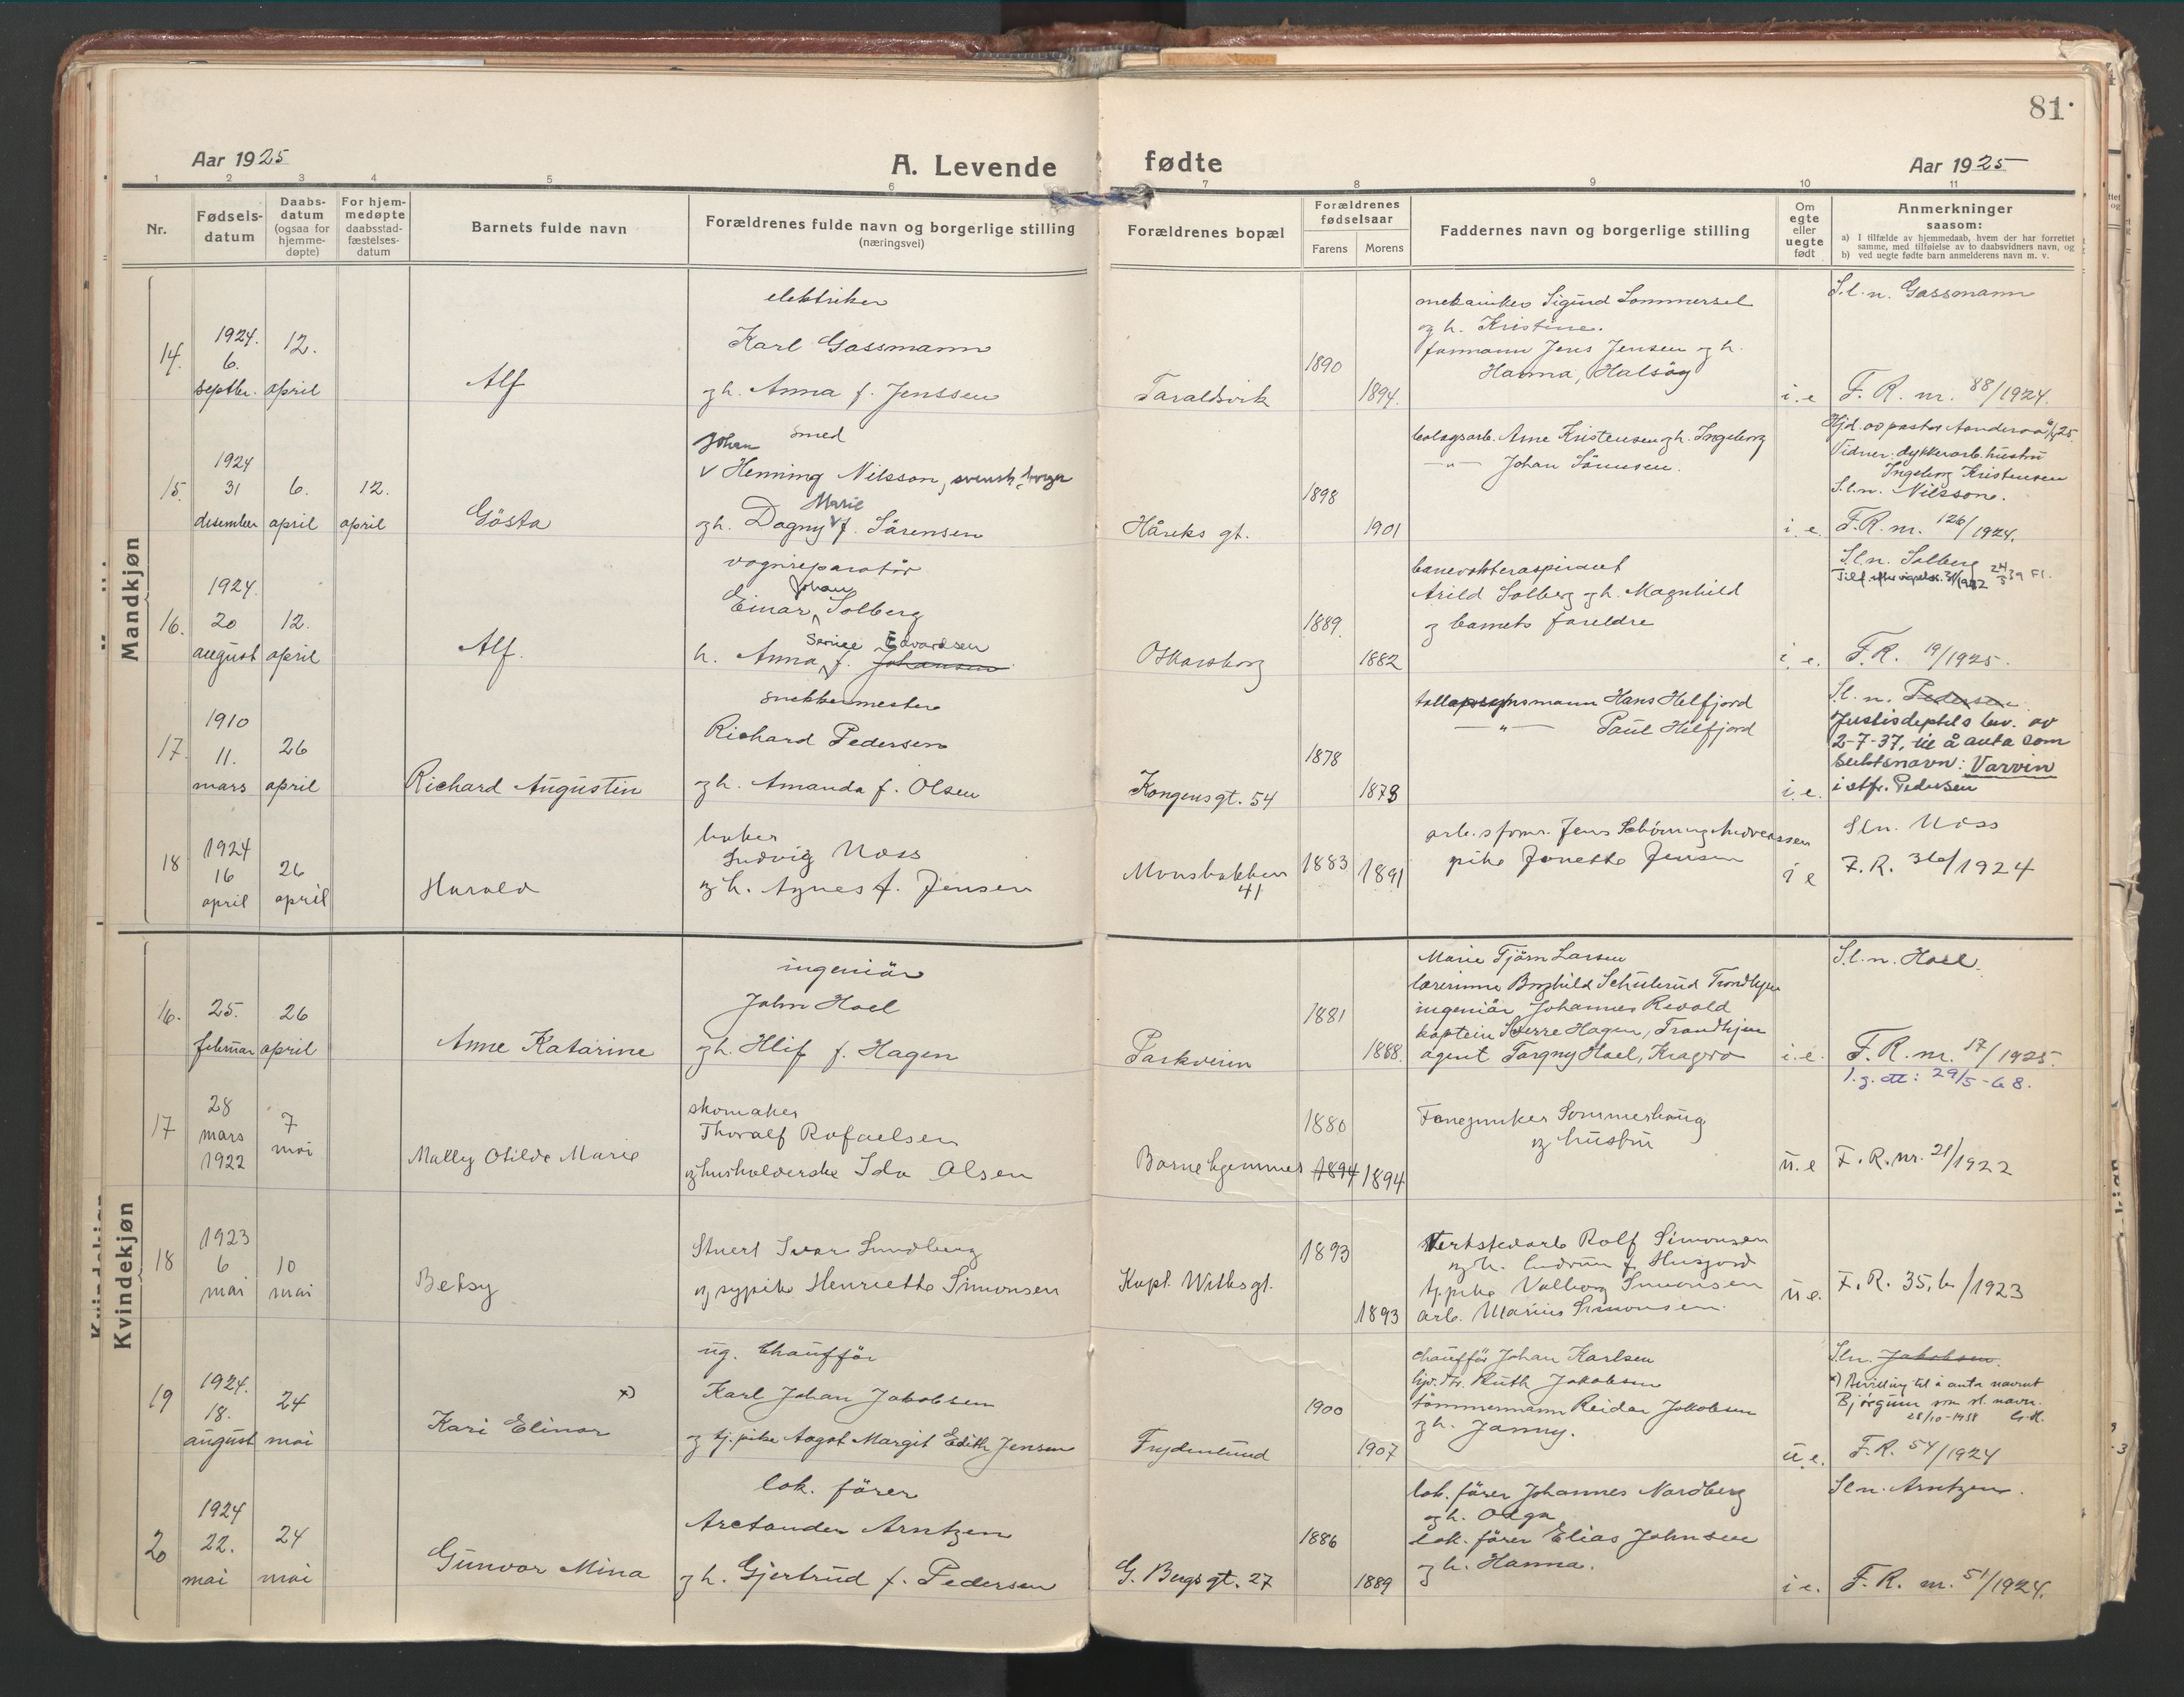 81.
Aar 1925
A. Levende fødte
Aar 1925
1 2 3 4 5 6 7 8 9 10 11
Nr.
Fødsels-
datum
Daabs-
datum
(ogsaa for
hjemme-
døpte)
For hjem-
medøpte
daabsstad-
fæstelses-
datum
Barnets fulde navn
Forældrenes fulde navn og borgerlige stilling
(næringsvei)
Forældrenes bopæl
Forældrenes
fødselsaar
Farens Morens
Faddernes navn og borgerlige stilling
Om
egte
eller
uegte
født
Anmerkninger
saasom:
a) I tilfælde av hjemmedaab, hvem der har forrettet
samme, med tilføielse av to daabsvidners navn, og
b) ved uegte fødte barn anmelderens navn m. v.
Mandkjøn
14.
1924.
6.
septbr.
12.
april
Alf
elektriker
Karl Gassmann
og h. Anna f. Jenssen
Taraldsvik
1890
1894.
mekaniker Sigurd Sommersel
og h. Kristine.
formann Jens Jensen og h.
Hanna, Halsøy
i. e
S.l.n. Gassmann
F. R. nr. 88/1924.
15.
1924
31
desember
6.
april
12.
april
Gösta
smed
Johan
v Henning Nilsson, svensk borger
Marie
og h. Dagny v f. Sörensen
Håreks gt.
1898
1901
bolagsarb. Arne Kristensen og h. Ingeborg
—"— Johan Sörensen.
i. e.
Hjd. av pastor Aanderaa 6/4 25.
Vidner: dykkerarb. hustru
Ingeborg Kristensen
S.l.n. Nilsson.
F.R. nr. 126/1924.
16.
1924.
20
august
12.
april
Alf.
vognreparatör
Johan
Einar Solberg
Serine Edvardsen
h. Anna f. Johansen
Oskarsborg
1889.
1882
banevokteraspirant
Arild Solberg og h. Magnhild
og barnets foreldre
i. e.
S.l.n. Solberg
F.R. 19/1925.
17.
1910
11.
mars
26
april
Richard Augustin
snekkermester
Richard Pedersen
og h. Amanda f. Olsen
Kongensgt. 54
1878
1878
tollopsynsmann Hans Helfjord
—"— Paul Helfjord
i. e.
S.l.n. Pedersen
Justisdeptets bev. av
2-7-37, til å anta som
slektsnavn: Varvin
istf. Pedersen
18
1924
16
april
26
april
Harald
baker
Ludvig Moss
og h. Agnes f. Jensen
Monsbakken
41
1883
1891
arb.sformn. Jens Schöning Andreassen
pike Jonette Jensen
i e
Sln. Moss
F. R. 36/1924
Kvindekjøn
16.
25.
februar
26
april
Anne Katarine
ingeniör
John Hoel
og h. Hlif f. Hagen
Parkveien
1881
1888.
Marie Tjörn Larsen
lærerinne Borghild Schulerud Trondhjem
ingeniör Johannes Revold
kaptein Sverre Hagen, Trondhjem
agent Torgny Hoel, Kragerø
i. e.
S.l.n. Hoel.
F. R. nr. 17/1925.
l. g. att: 29/5-68.
17
28
mars
1922
7
mai
Mally Otilde Marie
skomaker
Thoralf Rafaelsen
og husholderske Ida Olsen
Barnehjemmet
1880
1894 1894
Fanejunker Sommerhaug
og hustru
u. e
F. R. nr. 21/1922
18
1923
6
mai
10
mai
Betsy
Stuert Ivar Lundberg
og sypike Henriette Simonsen
Kapt. Wilksgt.
1893
1893
Verkstedarb Rolf Simonsen
og h. Gudrun f. Husjord
tj.pike Valborg Simonsen
arb. Marius Simonsen.
u e.
F. R. 35, b/1923
19
1924.
18.
august
24
mai
Kari Elinor
x)
ug. Chauffør
Karl Johan Jakobsen
og tj. pike Aagot Margit Edith Jensen
Frydenlund
1900
1907
chauffør Johan Karlsen
hjv. dtr. Ruth Jakobsen
tömmermann Reidar Jakobsen
og h. Janny.
u. e.
Sln. Jakobsen.
x) Bevilling til å anta navnet
Bjørgum som sl. navn.
28/10-1938
F.R. 54/1924
20
1924
22.
mai
24
mai
Gunvor Mina
lok. fører
Arctander Arntzen
og h. Gjertrud f. Pedersen
G. Bergs gt. 27
1886
1889
lok. fører Johannes Nordberg
og h. Olga
lok. fører Elias Johnsen
og h. Hanna.
i e.
Sln. Arntzen.
F. R. nr. 51/1924.